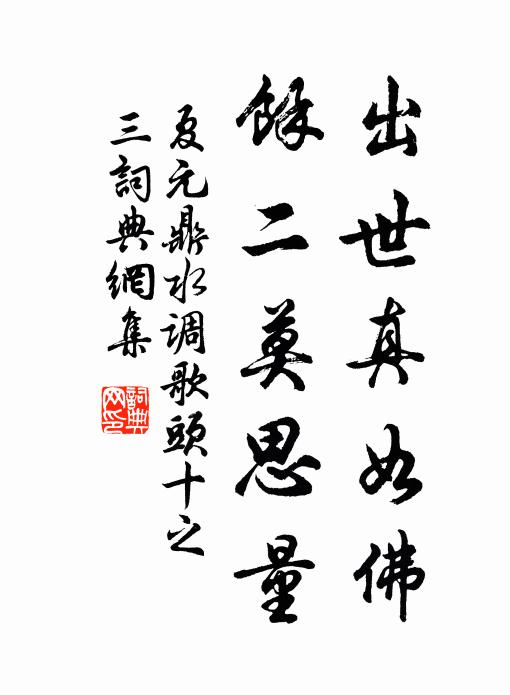 出世真如佛
餘二莫思量
夏元鼎水调歌頭十之
三詞典網集
詞典网印